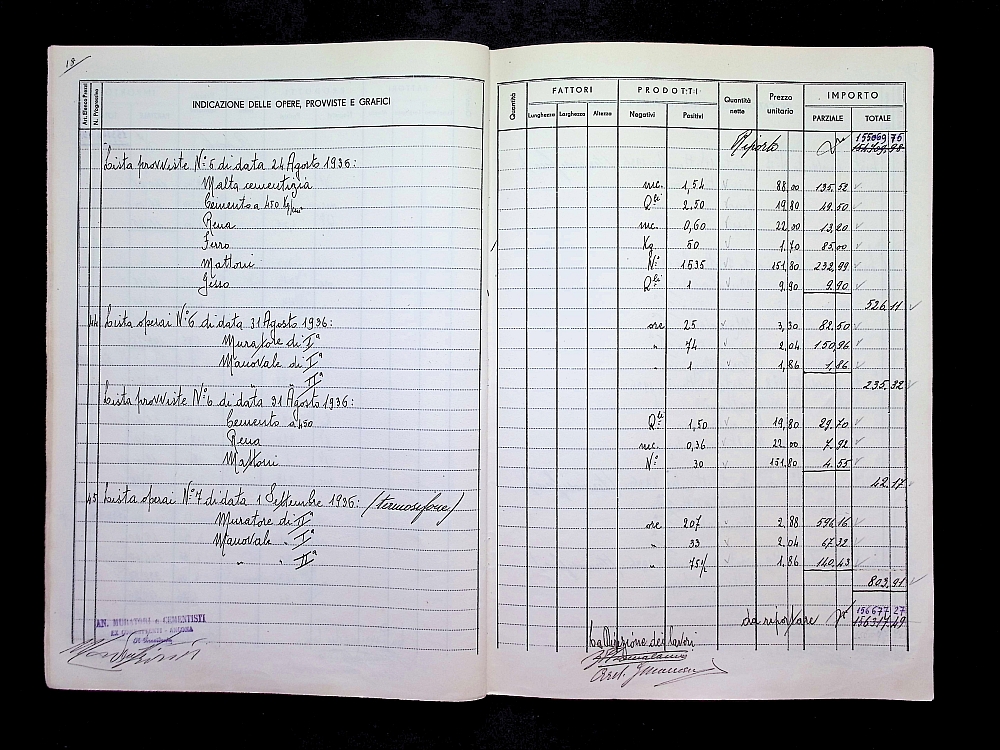 18
An. Elenco Prezzi
N. Progressivo
INDICAZIONE DELLE OPERE, PROVVISTE E GRAFICI
Quantità
FATTORI
Lunghezza Larghezza Altezza
PRODOTTI
Negativi Positivi
Quantità nette
Prezzo unitario
IMPORTO
PARZIALE TOTALE
Riporto 155069,76
Lista provviste N° 5 di data 24 Agosto 1936:
Malta cementizia mc. 1,54 88,00 135,52
Cemento a 450 Kg/cm² Qli 2.50 19,80 49,50
Rena mc. 0,60 22,00 13,20
Ferro Kg 50 1.70 85,00
Mattoni N° 1535 151,80 232,99
Gesso Qli 1 9,90 9.90
526.11
44 Lista operai N° 6 di data 31 Agosto 1936:
Muratore di Iª ore 25 3,30 82.50
Manovale di Iª " 74 2,04 150,96
" " IIª " 1 1,86 1,86
235,32
Lista provviste N° 6 di data 31 Agosto 1936:
Cemento a 450 Qli 1,50 19,80 29.70
Rena mc. 0,36 22,00 7,92
Mattoni N° 30 151.80 4.55
42.17
45 Lista operai N° 7 di data 1 Settembre 1936: (termosifone)
Muratore di IIª ore 207 2,88 596,16
Manovale " Iª " 33 2,04 67.32
" " IIª " 75½ 1,86 140,43
803,91
da riportare 156677,27
AN. MURATORI e CEMENTISTI
EX COMBATTENTI - ANCONA
La Direzione dei lavori